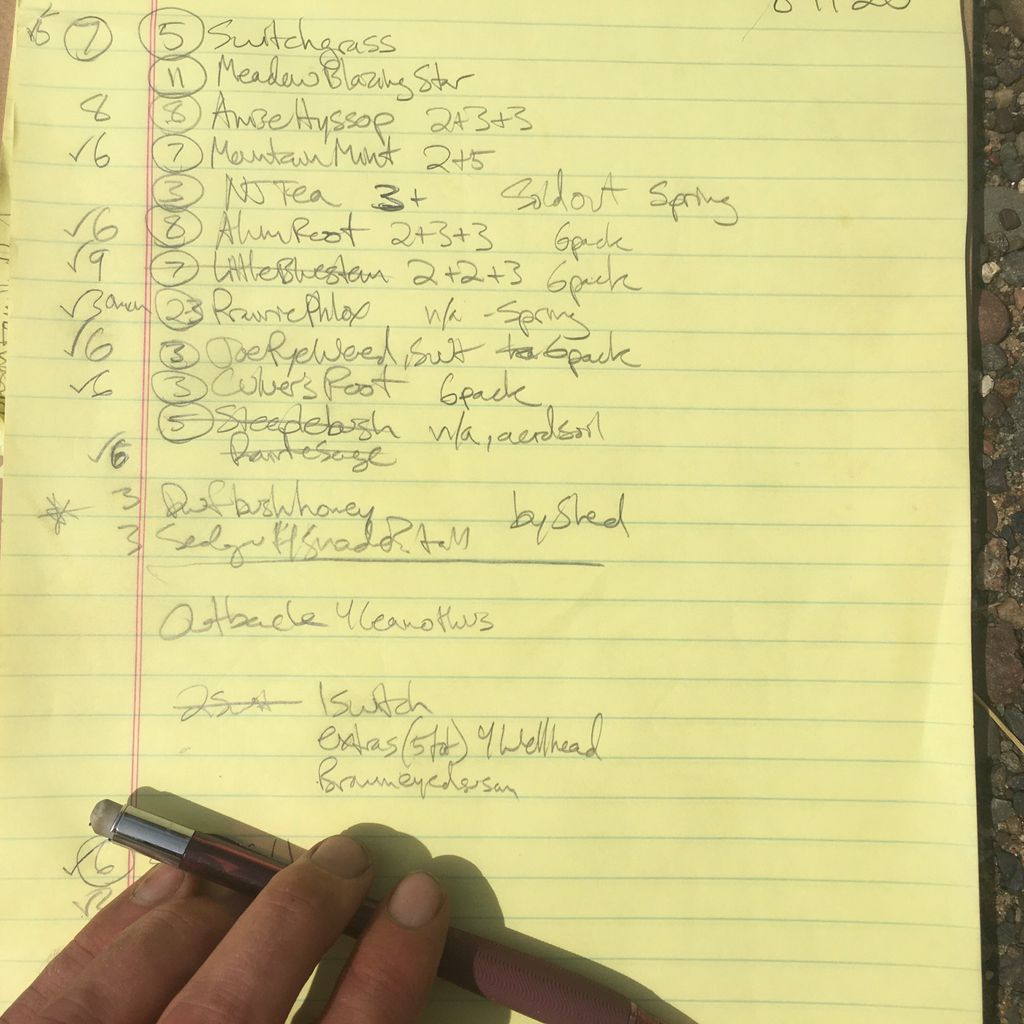 √5 7 5 Switchgrass
11 Meadow Blazing Star
8 8 Anise Hyssop 2+3+3
√6 7 Mountain Mint 2+5
3 NJ Tea 3+ Sold out Spring
√6 8 Alum Root 2+3+3 6pack
√9 7 Little Bluestem 2+2+3 6pack
√3 23 Prairie Phlox n/a - Spring
√6 3 Joe Pye Weed, 6pack
√6 3 Culver's Root 6pack
5 Steeplebush n/a,
√6
3 bushhoney by Shed
3
Outback 4 Ceanothus
1 Switch
extras (5 ) 4 Wellhead
√6
√3